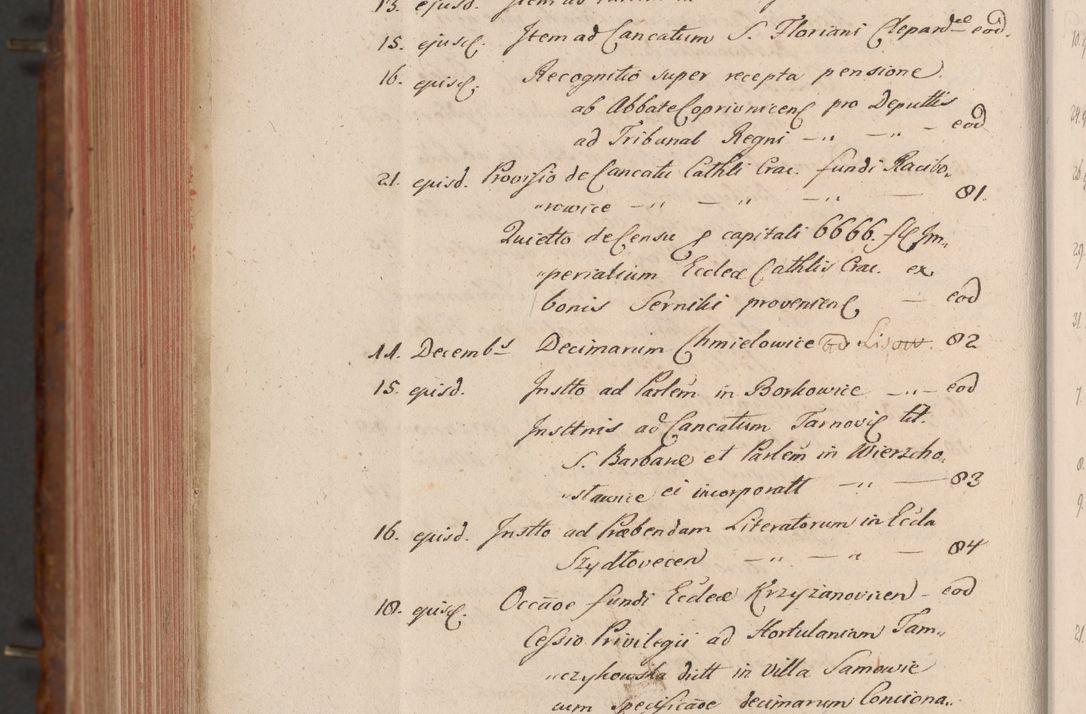 13. ejusd. Item ad
15. ejusd. Item ad Cancatum S. Floriani Clepardee eod.
16. ejusd. Recognitio super recepta pensione
ab Abbate Coprivnicen pro Deputtis
ad Tribunal Regni — „ — „ — eod
21. ejusd. Provisio de Cancatu Cathli Crac. fundi Racibo„
„rowice — „ — „ — „ — 81.
Quietto de Censu a capitali 6666. fl Im„
„perialium Eccleæ Cathlis Crac. ex
bonis Serniki provenien — eod
11. Decembs Decimarum Chmielowice ad Lisow. 82
15. ejusd. Instto ad Parlem in Borkowice — „ — eod
Insttnis ad Cancatum Tarnovi tit.
S. Barbaræ et Parlem in Wierzcho„
„stawice ei incorporatt — „ — 83
16. ejusd. Instto ad Præbendam Literatorum in Eccla
Szydlovecen — „ — „ — 84
18. ejusd. Occãoe fundi Eccleæ Krzyzanovicen — eod
Cessio Privilegii ad Hortulaniam Tam„
„czykowska dictt in Villa Samowie
cum specificãoe decimarum Conciona„